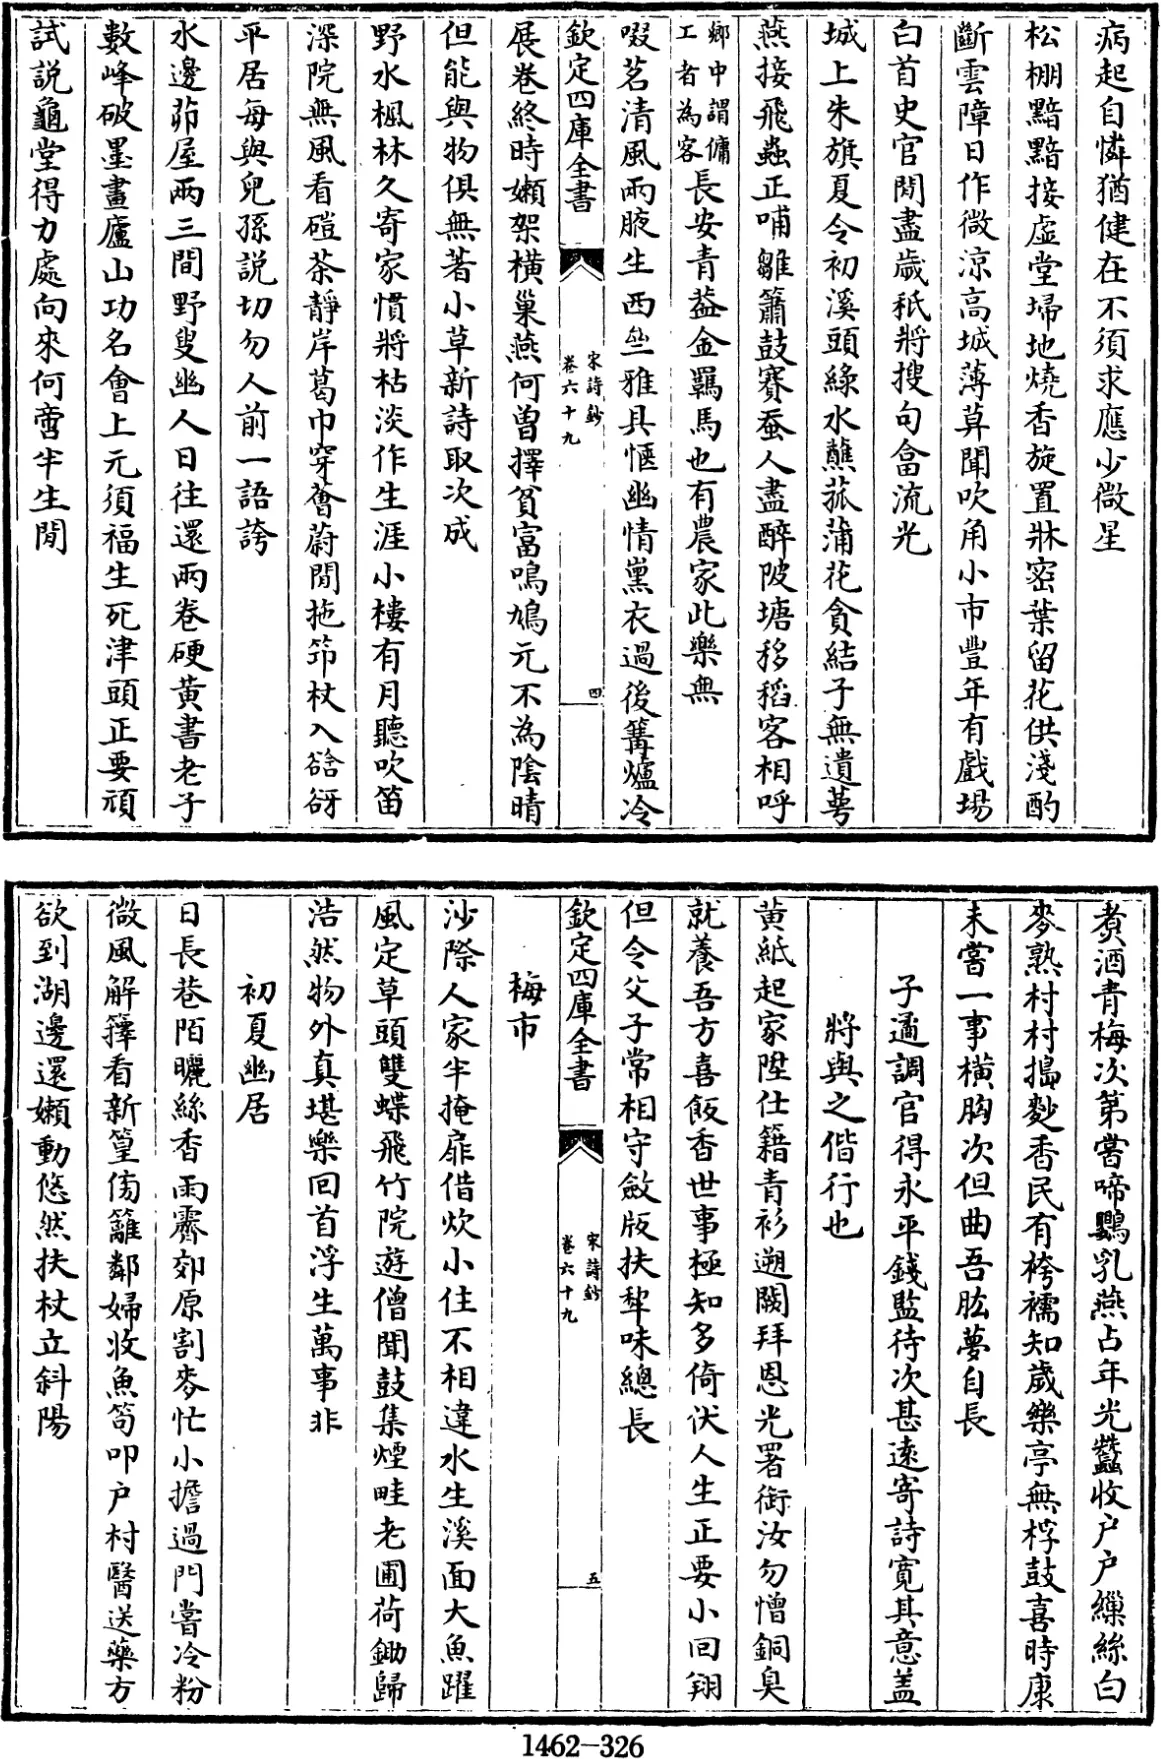 病起自憐猶健在不須求應少微星
松棚黯黯接虛堂埽地燒香旋置牀密葉留花供淺酌
斷雲障日作微涼高城薄莫聞吹角小市豐年有戲場
白首史官閒盡歲秪將搜句畣流光
城上朱旗夏令初溪頭綠水蘸菰蒲花貪結子無遺萼
燕接飛蟲正哺雛簫鼓賽蚕人盡醉陂塘移稻客相呼
鄉中謂傭
工者為客
長安青葢金羈馬也有農家此樂無
啜茗清風兩腋生西亝雅具愜幽情黨衣過後篝爐冷
欽定四庫全書
宋詩鈔
卷六十九
四
展卷終時嬾架橫巢燕何曽擇貧富鳴鳩元不為陰晴
但能與物俱無著小草新詩取次成
野水楓林久寄家慣將枯淡作生涯小樓有月聽吹笛
深院無風看磑茶靜岸葛巾穿薈蔚閒拖笻杖入谽谺
平居每與兒孫說切勿人前一語誇
水邊茆屋兩三間野叟幽人日往還兩卷硬黃書老子
數峰破墨畫廬山功名會上元須福生死津頭正要頑
試說龜堂得力處向來何啻半生閒
煑酒青梅次第嘗啼鸚乳燕占年光蠶收户户繅絲白
麥熟村村搗麨香民有袴襦知歲樂亭無桴鼓喜時康
未嘗一事橫胸次但曲吾肱夢自長
子遹調官得永平錢監待次甚遠寄詩寛其意盖
將與之偕行也
黃紙起家陞仕籍青衫遡闕拜恩光署銜汝勿憎銅臭
就養吾方喜飯香世事極知多倚伏人生正要小回翔
但令父子常相守斂版扶犂味總長
欽定四庫全書
宋詩鈔
卷六十九
五
梅市
沙際人家半掩扉借炊小住不相違水生溪面大魚躍
風定草頭雙蝶飛竹院遊僧聞鼓集煙畦老圃荷鋤歸
浩然物外真堪樂回首浮生萬事非
初夏幽居
日長巷陌曬絲香雨霽郊原割麥忙小擔過門嘗冷粉
微風解籜看新篁傍籬鄰婦收魚笱叩户村醫送藥方
欲到湖邊還嬾動悠然扶杖立斜陽
1462—326